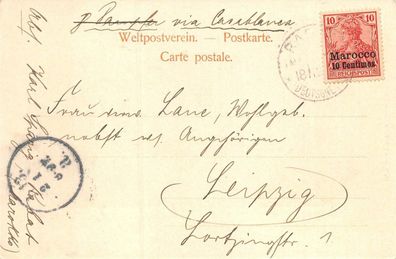 p Dampfer via Casablanca
Weltpostverein. — Postkarte.
Carte postale.
10 10
Marocco
10 Centimes
REICHSPOST
18/
DEUTSCHE
Frau Lanc, Wohlgeb.
nebst Angehörigen
Leipzig
Lortzingstr. 1
Abs. Karl
Rabat
(Marokko)